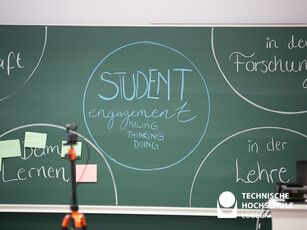 in der
Forschung
STUDENT
engagement
FEELING
THINKING
DOING
beim
Lernen
in der
Lehre
TECHNISCHE
HOCHSCHULE
LÜBECK